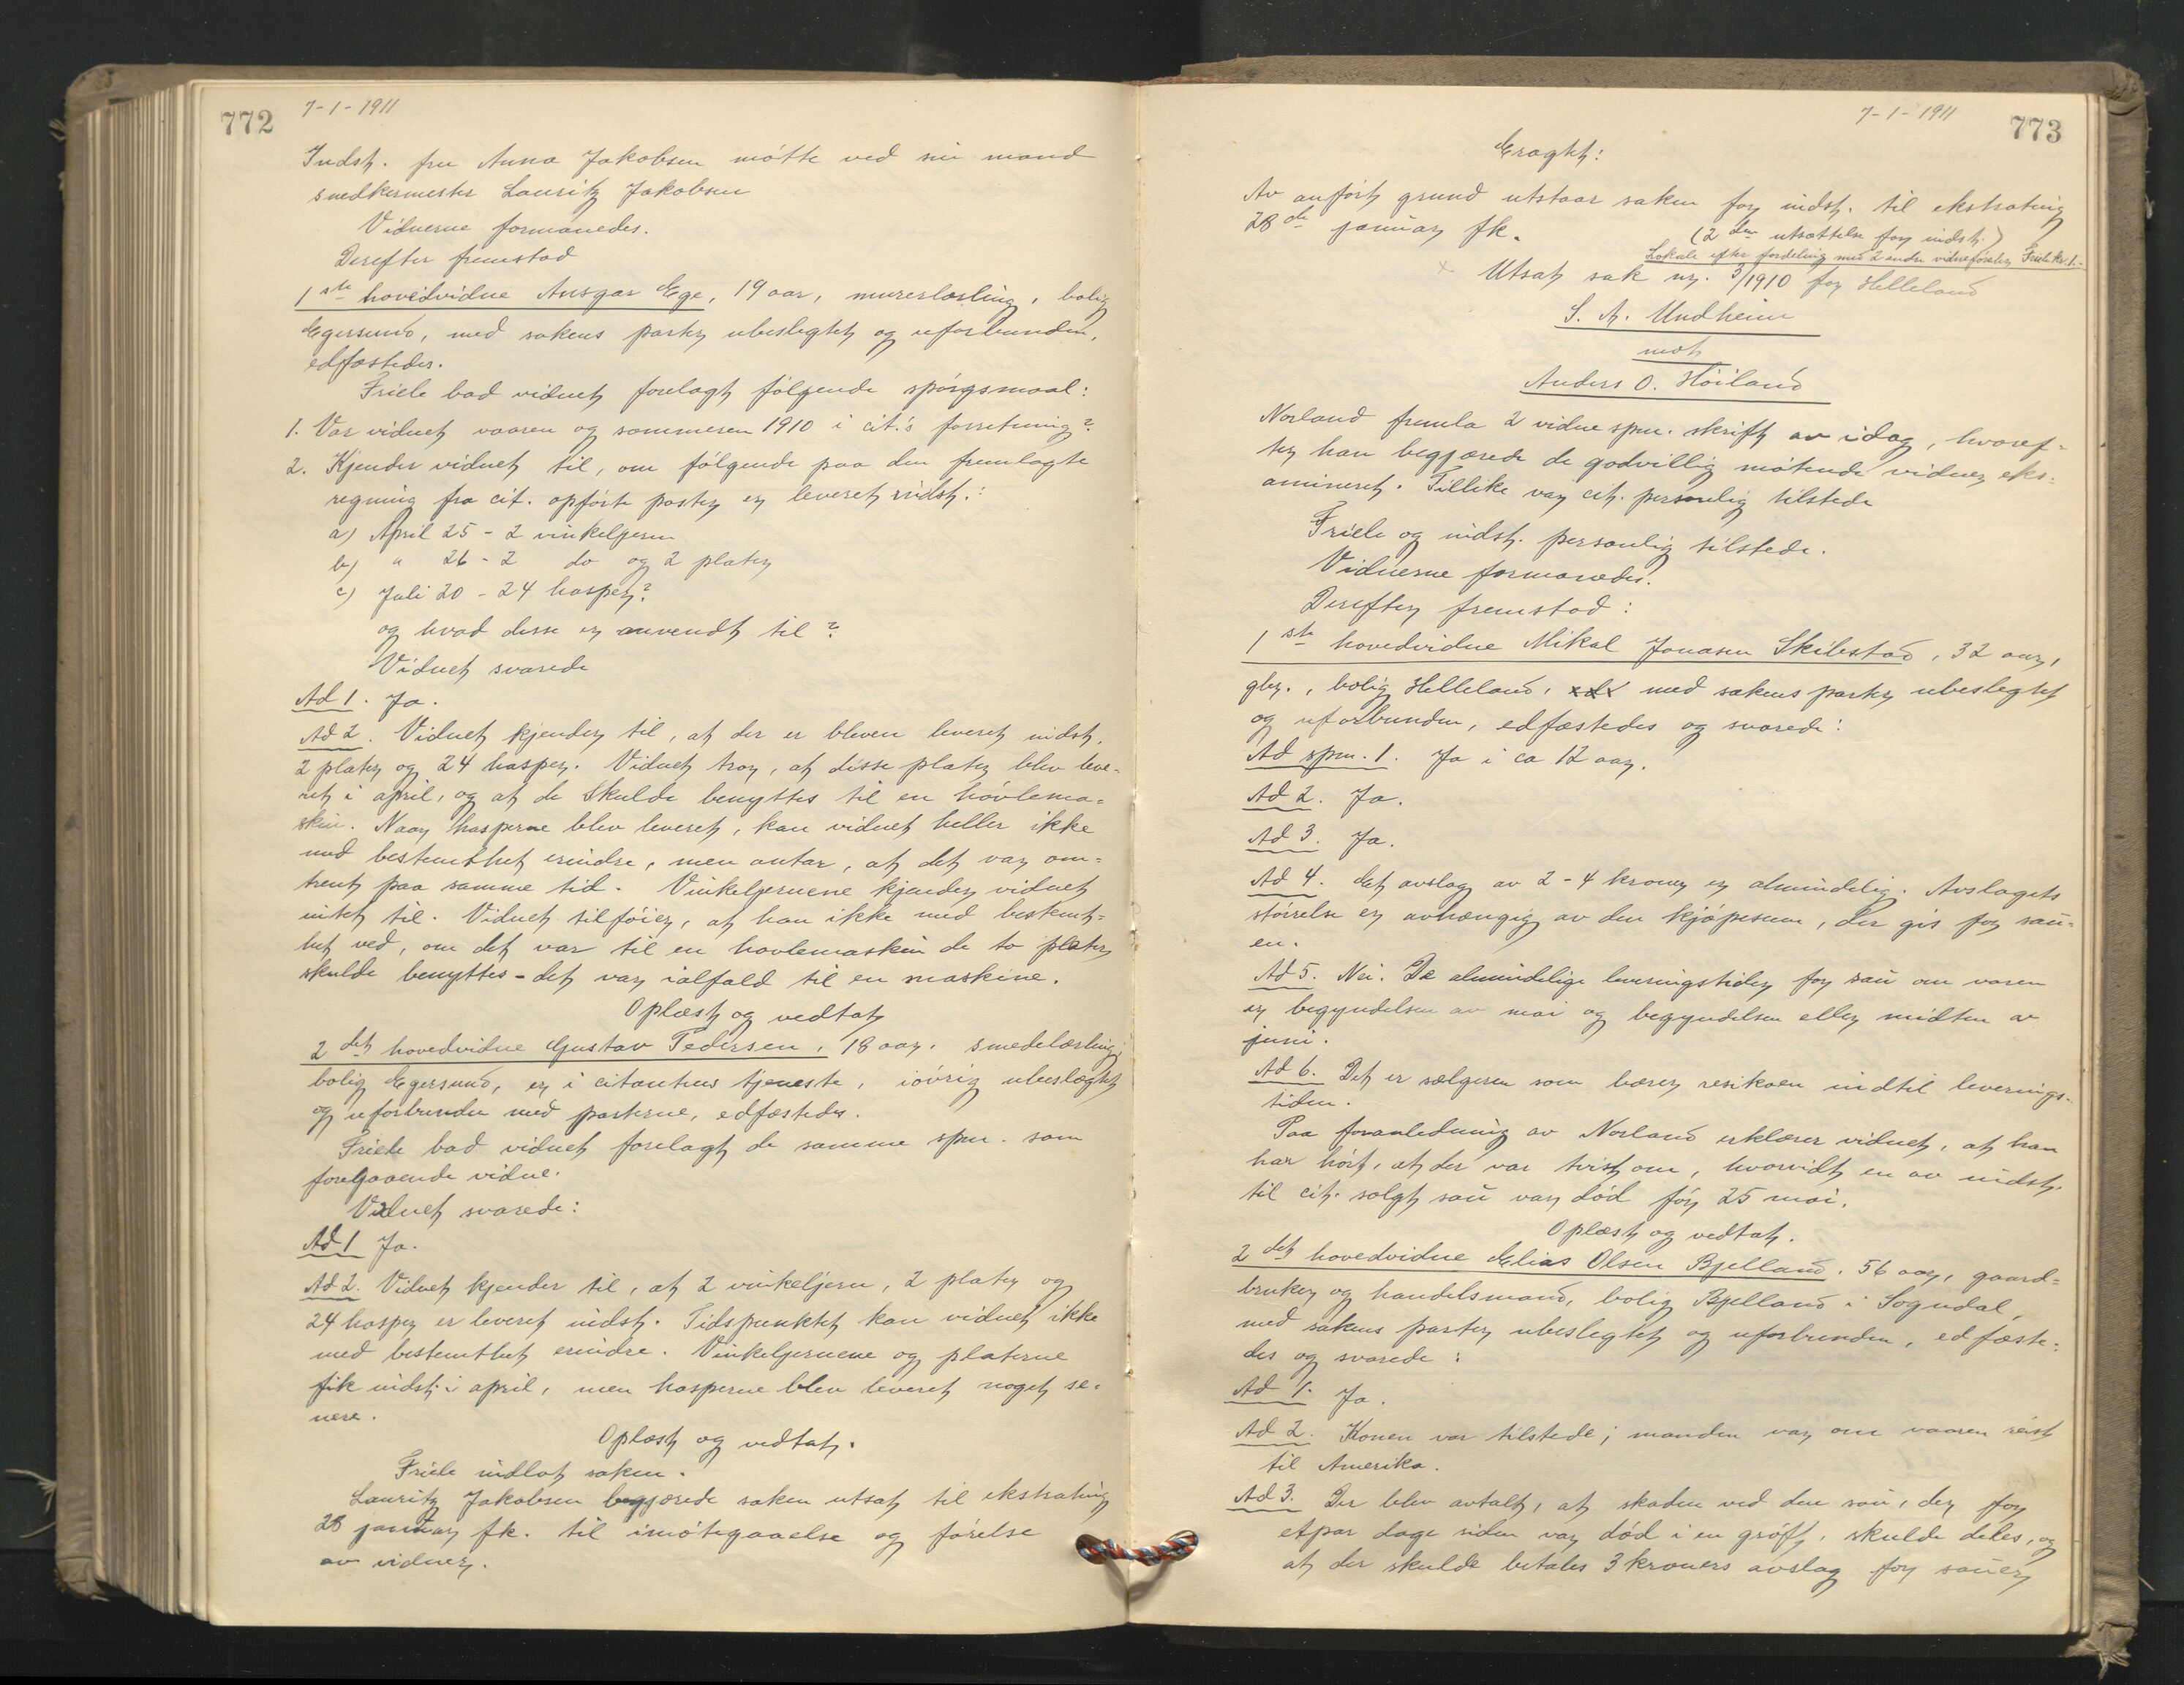 772
7-1-1911
Indst. fru Anna Jakobsen møtte ved sin mand
snedkermester Lauritz Jakobsen
Vidnerne formanedes.
Derefter fremstod
1ste hovedvidne Ansgar Ege, 19 aar, murerlærling, bolig
Egersund, med sakens parter ubeslegtet og uforbunden,
edfæstedes.
Friele bad vidnet forelagt følgende spørgsmaal:
1. Var vidnet vaaren og sommeren 1910 i cit.'s forretning?
2. Kjender vidnet til, om følgende paa den fremlagte
regning fra cit. opførte poster er leveret indst.:
a) April 25 - 2 vinkeljern
b) " 26 - 2 do og 2 plater
c) Juli 20 - 24 hasper?
og hvad disse er anvendt til?
Vidnet svarede
Ad 1. Ja.
Ad 2. Vidnet kjender til, at der er bleven leveret indst.
2 plater og 24 hasper. Vidnet tror, at disse plater blev leve-
ret i april, og at de skulde benyttes til en høvlema-
skin. Naar hasperne blev leveret, kan vidnet heller ikke
med bestemthet erindre, men antar, at det var om-
trent paa samme tid. Vinkeljernene kjender vidnet
intet til. Vidnet tilføier, at han ikke med bestemt-
het ved, om det var til en høvlemaskin de to plater
skulde benyttes - det var ialfald til en maskine.
Oplæst og vedtat
2det hovedvidne Gustav Pedersen, 18 aar, smedelærling,
bolig Egersund, er i citantens tjeneste, iøvrig ubeslægtet
og uforbunden med parterne, edfæstedes.
Friele bad vidnet forelagt de samme spm. som
foregaaende vidne.
Vidnet svarede:
Ad 1 Ja.
Ad 2. Vidnet kjender til, at 2 vinkeljern, 2 plater og
24 hasper er leveret indst. Tidspunktet kan vidnet ikke
med bestemthet erindre. Vinkeljernene og platerne
fik indst. i april, men hasperne blev leveret noget se-
nere.
Oplæst og vedtat.
Friele indlot saken.
Lauritz Jakobsen begjærede saken utsat til ekstrating
28 januar fk. til imøtegaaelse og førelse
av vidner.
773
7-1-1911
Eragtet:
Av anført grund utstaar saken for indst. til ekstrating
28de januar fk.
(2den utsættelse for indst.)
Lokale efter fordeling med 2 andre vidneførsler, Friele kr. 1.-
x Utsat sak nr. 3/1910 for Helleland
S. A. Undheim
mot
Anders O. Høiland
Norland fremla 2 vidne spm. skrift av idag, hvoref-
ter han begjærede de godvillig møtende vidner eks-
amineret. Tillike var cit. personlig tilstede
Friele og indst. personlig tilstede.
Vidnerne formanedes.
Derefter fremstod:
1ste hovedvidne Mikal Jonasen Skibestad, 32 aar,
gbr., bolig Helleland, med sakens parter ubeslegtet
og uforbunden, edfæstedes og svarede:
Ad spm. 1. Ja i ca 12 aar.
Ad 2. Ja.
Ad 3. Ja.
Ad 4. Et avslag av 2-4 kroner er almindelig. Avslagets
størrelse er avhængig av den kjøpesum, der gis for sau-
en.
Ad 5. Nei. De almindelige leveringstider for sau om vaaren
er begyndelsen av mai og begyndelsen eller midten av
juni.
Ad 6. Det er sælgeren som bærer resikoen indtil leverings-
tiden.
Paa foranledning av Norland erklærer vidnet, at han
har hørt, at der var tvist om, hvorvidt en av indst.
til cit. solgt sau var død før 25 mai.
Oplæst og vedtat.
2det hovedvidne Elias Olsen Bjelland, 56 aar, gaard-
bruker og handelsmand, bolig Bjelland i Sogndal,
med sakens parter ubeslegtet og uforbunden, edfæste-
des og svarede:
Ad 1. Ja.
Ad 2. Konen var tilstede; manden var om vaaren reist
til Amerika.
Ad 3. Der blev avtalt, at skaden ved den sau, der for
etpar dage siden var død i en grøft, skulde deles, og
at der skulde betales 3 kroners avslag for sauer